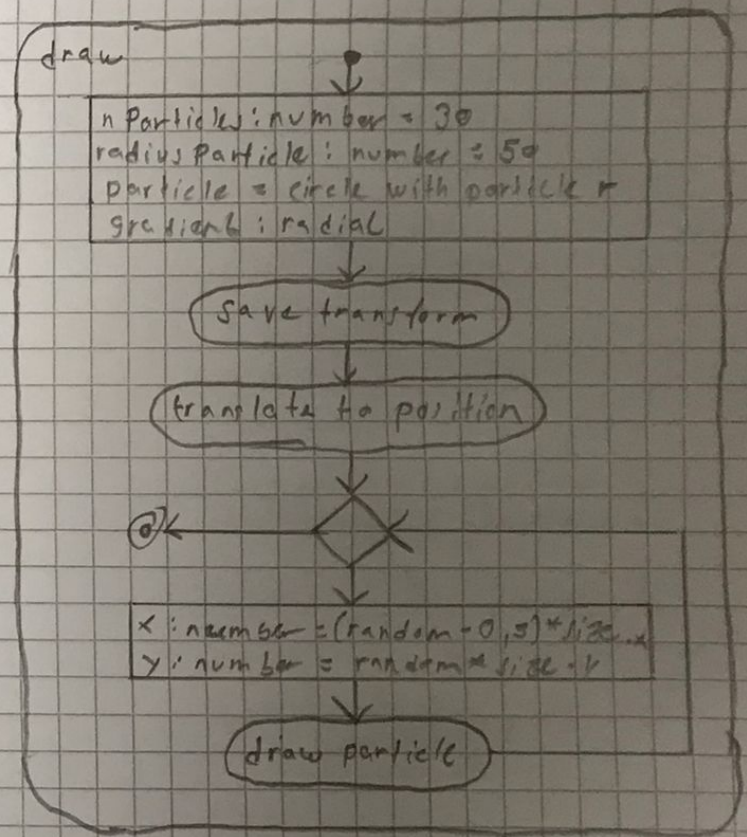 draw
nParticles : number = 30
radiusParticle : number = 50
particle = circle with particle r
gradient : radial
save transform
translate to position
x : number = (random - 0,5) * size.x
y : number = random * size.y
draw particle